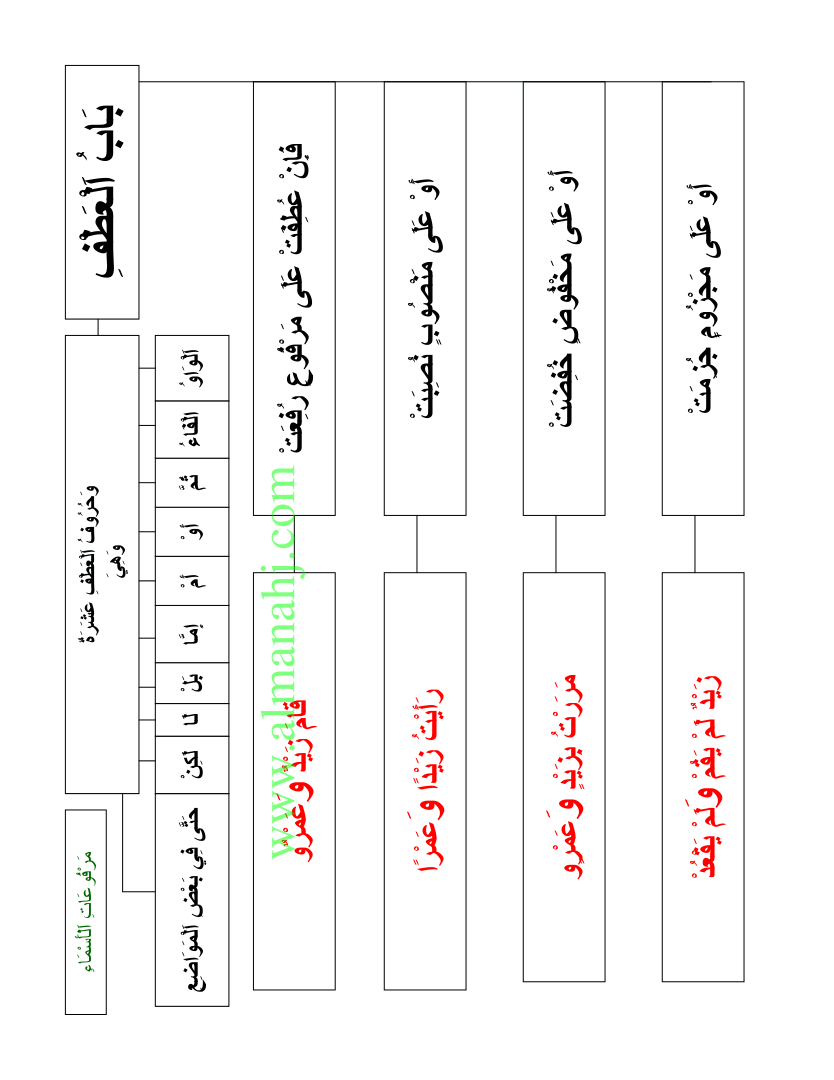 بَابُ اَلْعَطْفِ
وَحُرُوفُ اَلْعَطْفِ عَشَرَةٌ
وَهِيَ
اَلْوَاوُ
اَلْفَاءُ
ثُمَّ
أَوْ
أَمْ
إِمَّا
بَلْ
لَا
لَكِنْ
حَتَّى فِي بَعْضِ اَلْمَوَاضِعِ
فَإِنْ عُطِفَتْ عَلَى مَرْفُوعٍ رُفِعَتْ
قَامَ زَيْدٌ وَعَمْرٌو
أَوْ عَلَى مَنْصُوبٍ نُصِبَتْ
رَأَيْتُ زَيْدًا وَعَمْرًا
أَوْ عَلَى مَخْفُوضٍ خُفِضَتْ
مَرَرْتُ بِزَيْدٍ وَعَمْرٍو
أَوْ عَلَى مَجْزُومٍ جُزِمَتْ
زَيْدٌ لَمْ يَقُمْ وَلَمْ يَقْعُدْ
مَرْفُوعَاتِ اَلْأَسْمَاءِ
www.almanahj.com